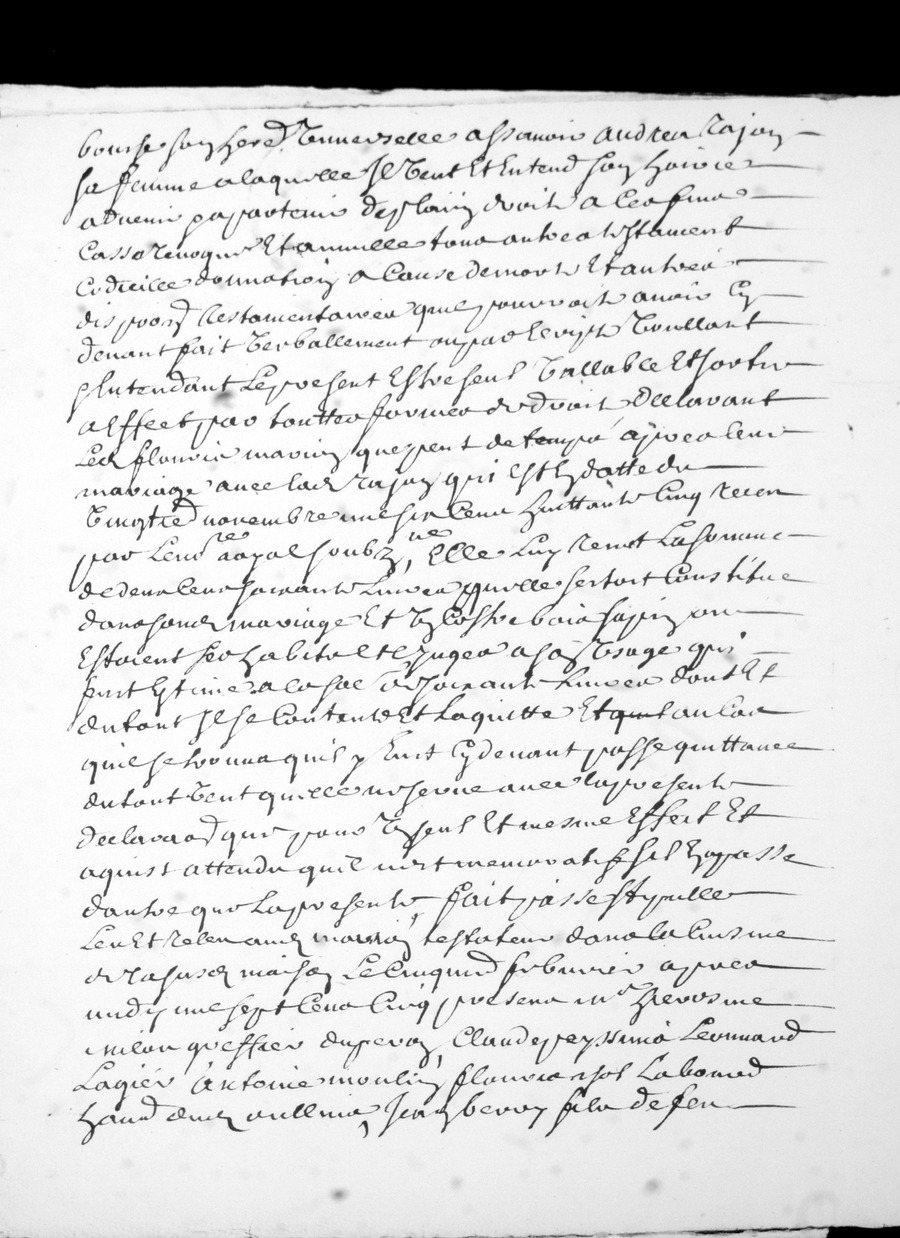 bouche son hered universelle assavoir andrea rajon
sa femme a laquelle Il veut Et Entend son hoirie
advenir appartenir de plain droit a ces fins
Casse revoque Et annulle tous autres testament
Codicille donnation a Cause de mort Et autres
dispoon testamentaires quil pourroit avoir Cy
devant fait verballement ou par Escript voullant
Entendant Le present Estre seul vallable Et sortir
a Effect par touttes formes de droit declarant
Led flouris marin que peut de temps apres leur
mariage avec lad rajon qui Est En datte du
vingt novembre mil six Cens huittante Cinq receu
par Leu nore royal soubzne, Elle Luy remit La somme
de deux Cens soixante Livres quelle sestoit Constitue
dans son mariage Et un Coffre bois sapin ou
Estoient ses habits Et linges a son usage qui
furt Estime a la somme de soixante Livres dont Et
du tout Il se Contente Et La quitte Et au Cas
quil se trouva quil y Eust Cy devant passe quittance
du tout veut quelle ne serve avec la presente
declaraon que pour un seul Et mesme Effect Et
aquist attendu quil nest memoratif sil En passe
dautre que La presente fait passe stipulle
Leu Et releu aud marin testateur dans la Cuisine
de sa susd maison Le Cinquie febvrier apres
midy mil sept Cens Cinq presens mr hierosme
milon greffier du peroy, Claude peyssimo Leonnard
Lagier Antoine moulin flouris Labomed
aud ullins, Jean berry fils de feu